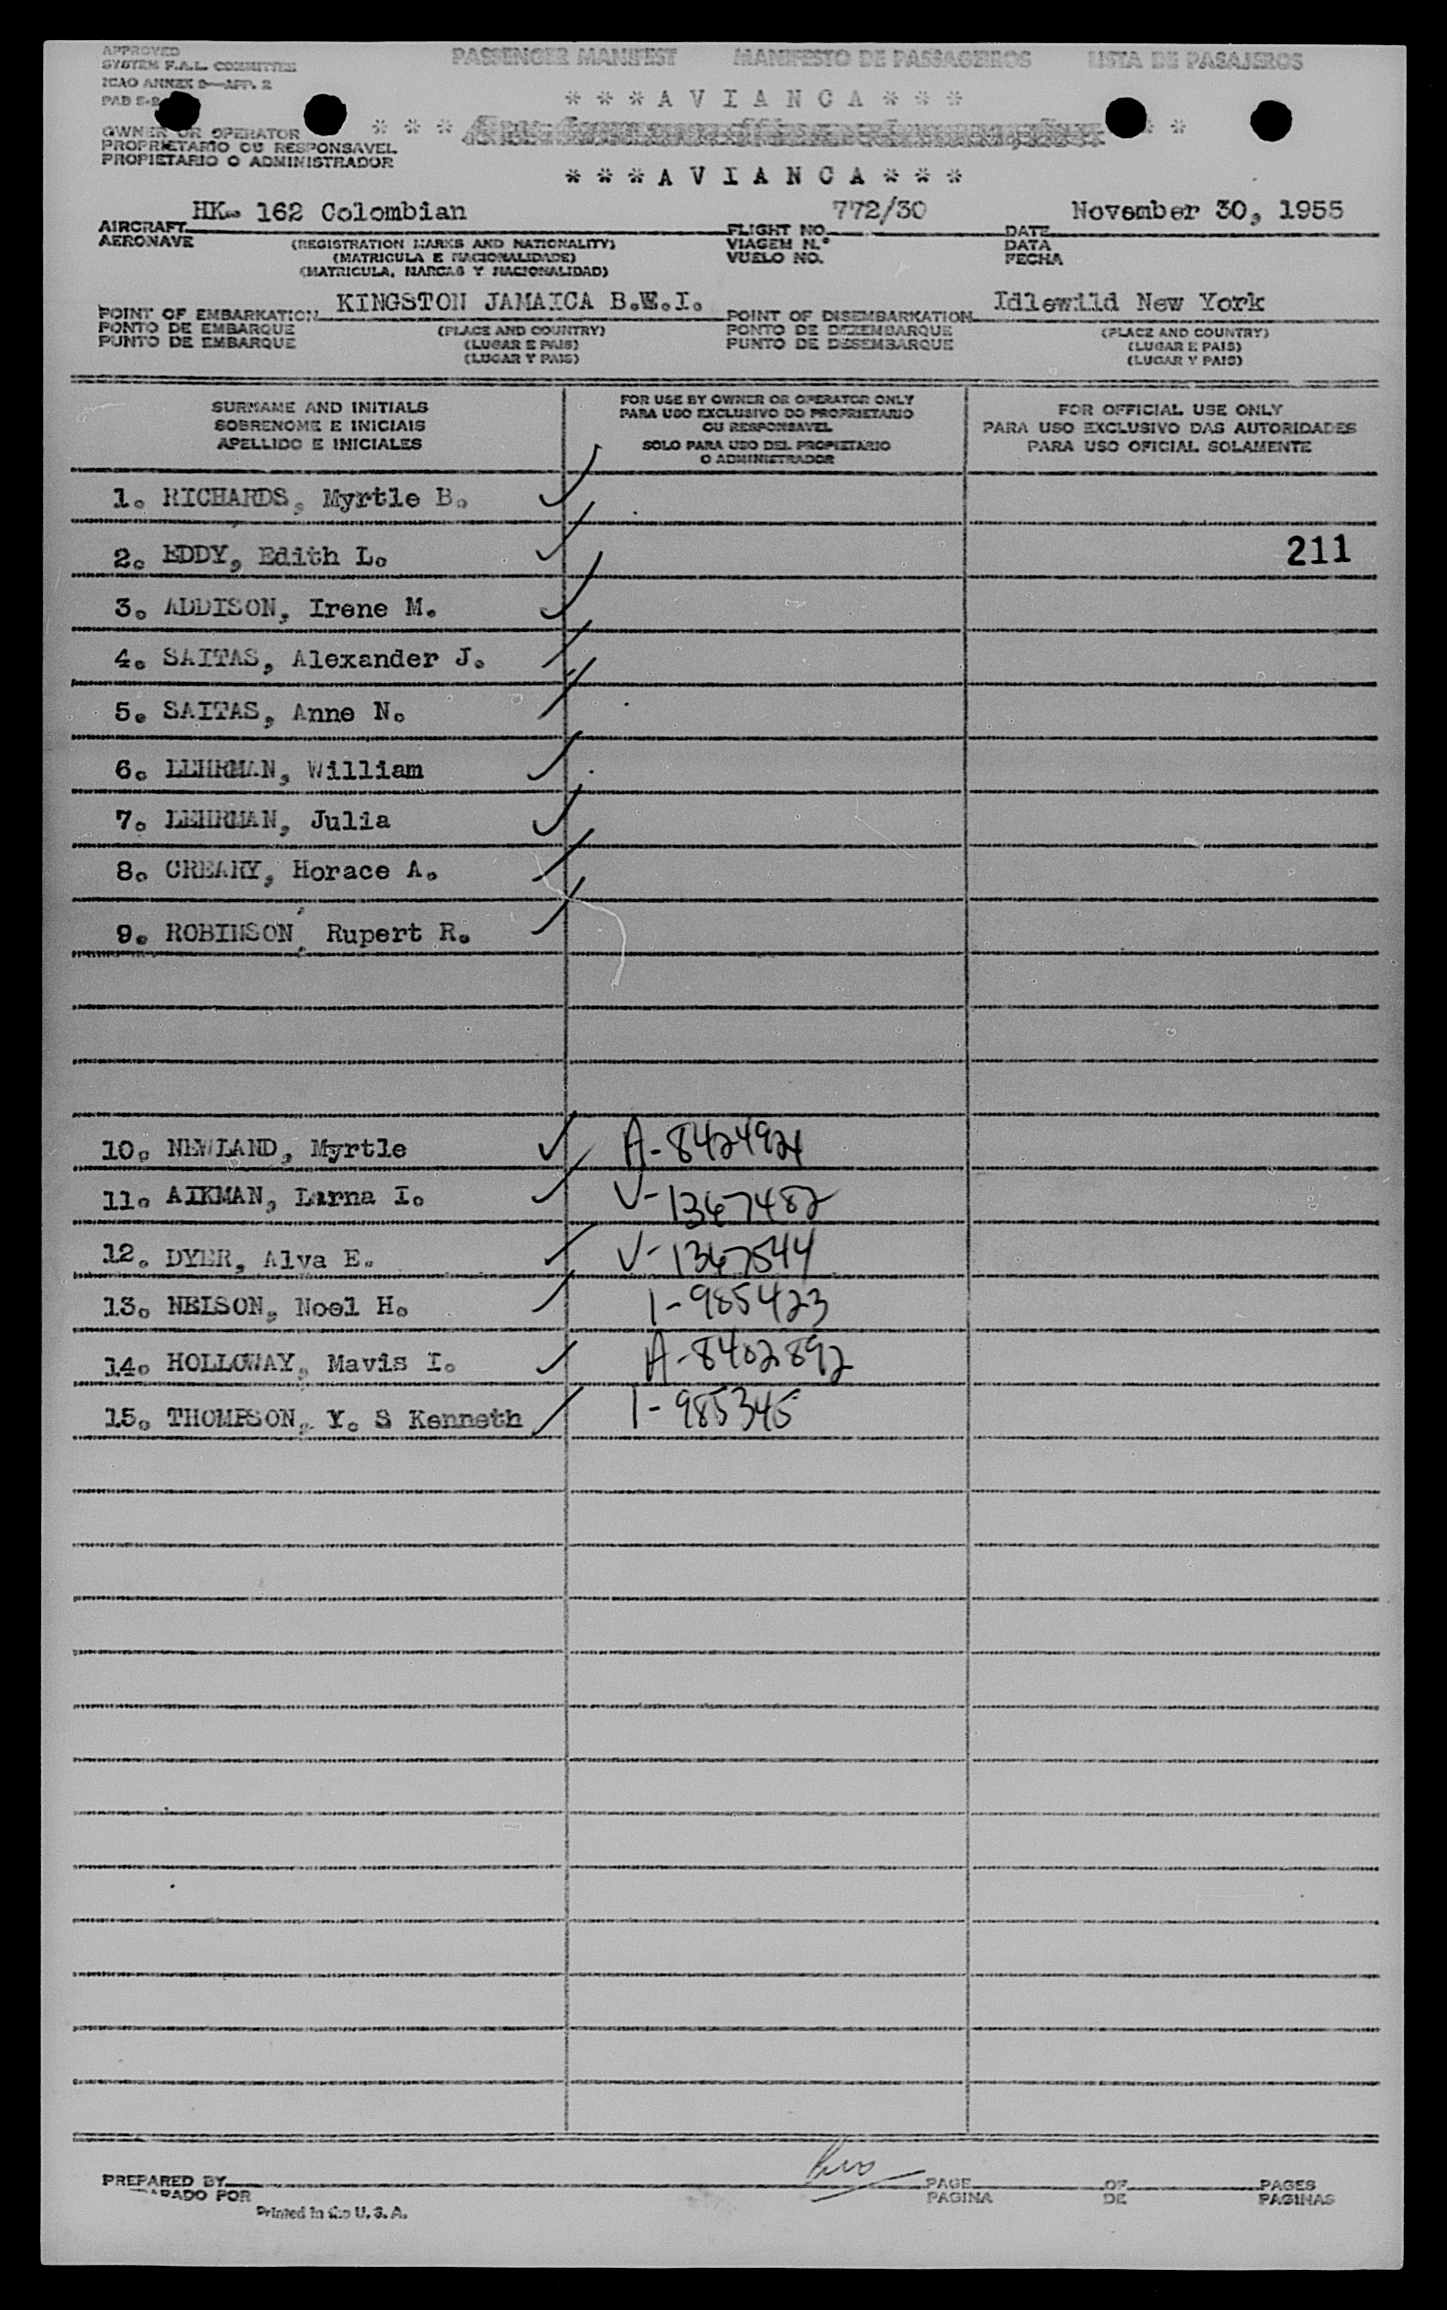 APPROVED
SYSTEM F.A.L. COMMITTEE
ICAO ANNEX 9—APP. 2
PASSENGER MANIFEST MANIFESTO DE PASSAGEIROS LISTA DE PASAJEROS
* * * A V I A N C A * * *
OWNER OR OPERATOR
PROPRIETARIO OU RESPONSAVEL
PROPIETARIO O ADMINISTRADOR
* * * A V I A N C A * * *
HK- 162 Colombian 772/30 November 30, 1955
AIRCRAFT FLIGHT NO. DATE
AERONAVE (REGISTRATION MARKS AND NATIONALITY) VIAGEM N.º DATA
(MATRICULA E NACIONALIDADE) VUELO NO. FECHA
(MATRICULA, MARCAS Y NACIONALIDAD)
KINGSTON JAMAICA B.W.I. Idlewild New York
POINT OF EMBARKATION POINT OF DISEMBARKATION
PONTO DE EMBARQUE (PLACE AND COUNTRY) PONTO DE DEZEMBARQUE (PLACE AND COUNTRY)
PUNTO DE EMBARQUE (LUGAR E PAIS) PUNTO DE DESEMBARQUE (LUGAR E PAIS)
(LUGAR Y PAIS) (LUGAR Y PAIS)
SURNAME AND INITIALS
SOBRENOME E INICIAIS
APELLIDO E INICIALES
FOR USE BY OWNER OR OPERATOR ONLY
PARA USO EXCLUSIVO DO PROPRIETARIO
OU RESPONSAVEL
SOLO PARA USO DEL PROPIETARIO
O ADMINISTRADOR
FOR OFFICIAL USE ONLY
PARA USO EXCLUSIVO DAS AUTORIDADES
PARA USO OFICIAL SOLAMENTE
1. RICHARDS, Myrtle B.
2. EDDY, Edith L. 211
3. ADDISON, Irene M.
4. SAITAS, Alexander J.
5. SAITAS, Anne N.
6. LEHRMAN, William
7. LEHRMAN, Julia
8. CREARY, Horace A.
9. ROBINSON, Rupert R.
10. NEWLAND, Myrtle A-8424924
11. AIKMAN, Larna I. V-1367482
12. DYER, Alva E. V-1367544
13. NEISON, Noel H. I-985423
14. HOLLOWAY, Mavis I. A-8402892
15. THOMPSON, Y. S Kenneth I-985345
PREPARED BY PAGE OF PAGES
PARADO POR PAGINA DE PAGINAS
Printed in the U.S.A.